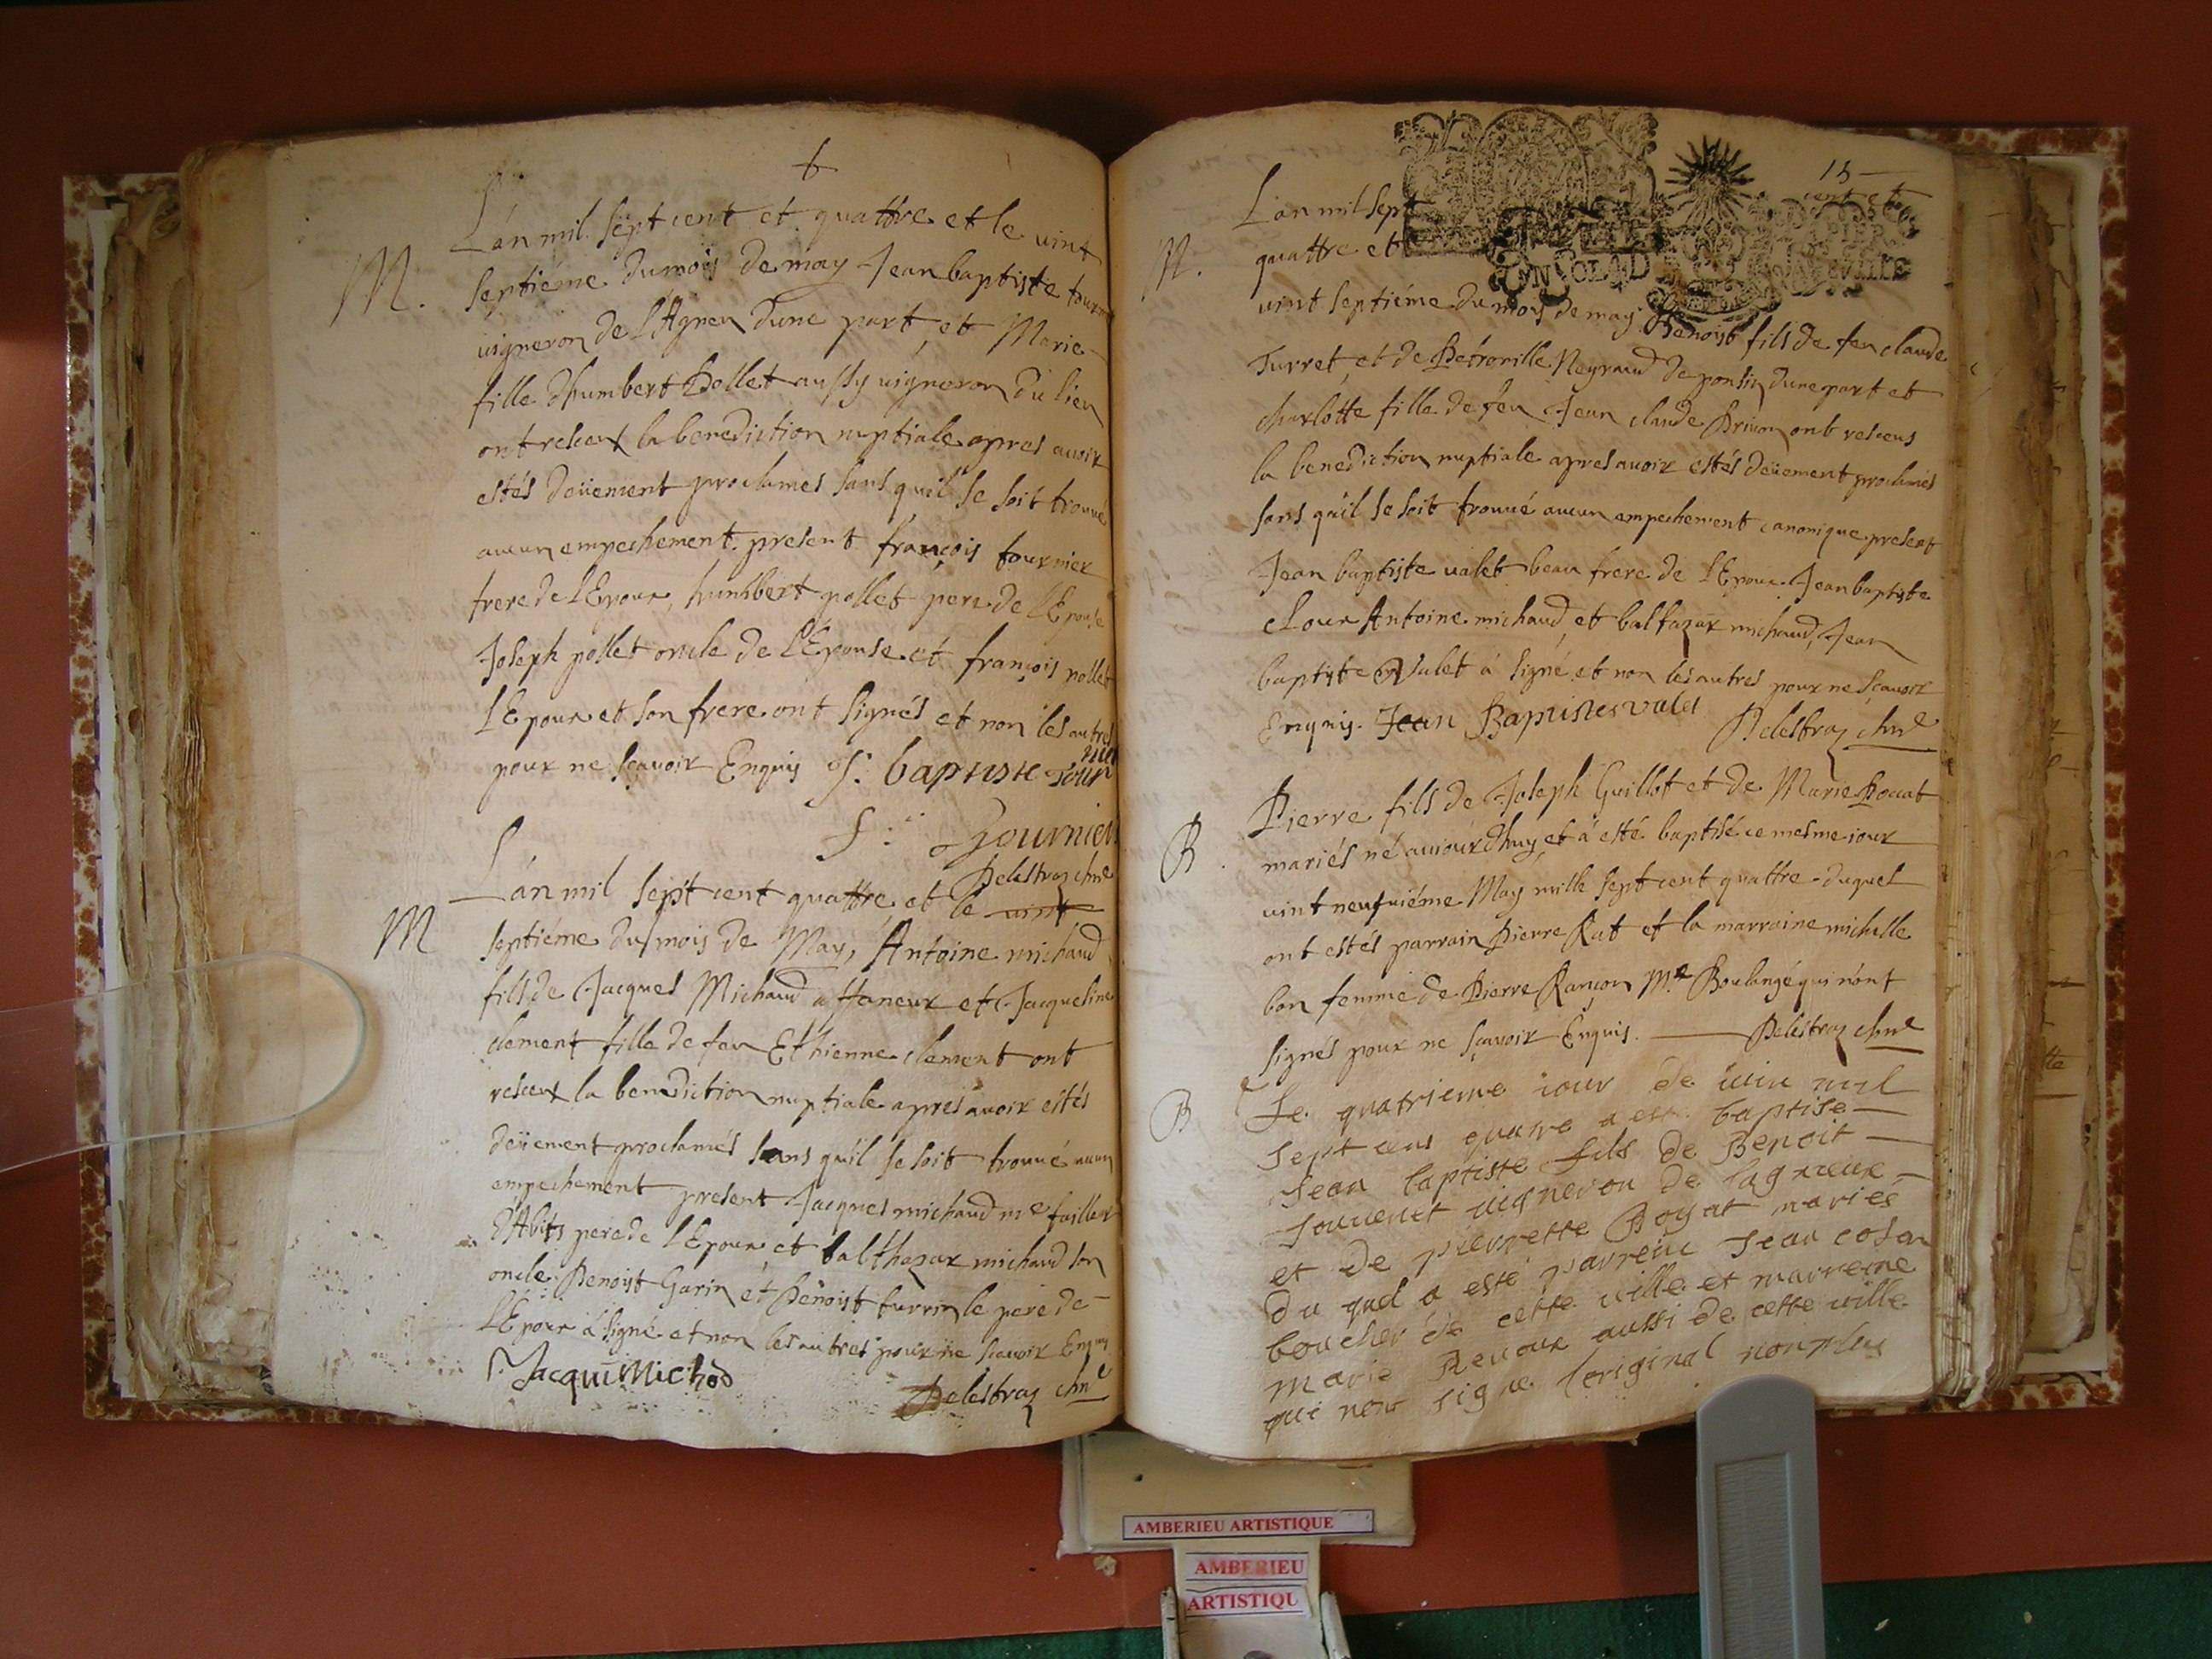 L'an mil sept cent et quattre et le vint
M. septiéme du mois de may Jean baptiste
vigneron de l'Agneu dune part, et Marie
fille dhumbert Pollet aussy vigneron du lieu
ont receux la benediction nuptiale apres avoir
estés deüement proclames sans quil se soit trouvé
aucun empechement. present françois fournier
frere de l'Epoux, humbert pollet pere de l'Epouse
Joseph pollet oncle de l'Epouse et françois pollet
l'Epoux et son frere ont signés et non les autres
pour ne sçavoir Enquis J. baptiste four
nier
f: fournier
Delestraz chne
L'an mil sept cent quattre et le vint
M septiéme du mois de May, Antoine michaud
fils de Jacques Michaud affaneur et Jacqueline
clement fille de feu Ethienne clement ont
receux la benediction nuptiale apres avoir estés
deüement proclamés sans quil se soit trouvé aucun
empechement present Jacques michaud me tailleur
d'Abits pere de l'Epoux et balthazar michaud son
oncle Benoist Garin et Benoist turrin le pere de
l'Epoux á signé et non les autres pour ne scavoir Enquis
Jacqui Michod
Delestraz chne
15
L'an mil sept cent et
M. quattre et
vint septiéme du mois de may Benoist fils de feu claude
Turret, et de Petronille Neyraud de ponsin dune part et
charlotte fille de feu Jean claude Brivon ont receus
la benediction nuptiale apres avoir estés deüement proclamés
sans quil se soit trouvé aucun empechement canonique present
Jean baptiste valet beau frere de l'Epoux Jean baptiste
cloux Antoine michaud, et baltazar michaud, Jean
baptiste Valet á signé et non les autres pour ne sçavoir
Enquis. Jean Baptiste valet Delestraz chne
Pierre fils de Joseph Guillot et de Marie Bouat
B. mariés né aujourdhuy et á esté baptisé ce mesme iour
vint neufviéme May mille sept cent quattre duquel
ont estés parrain Pierre Rat et la marraine michelle
bon femme de Pierre Rançon Me Boulangé qui n'ont
signés pour ne sçavoir Enquis. Delestraz chne
B Le quatrieme iour de iuin mil
sept cens quatre a este baptise
Jean baptiste fils de Benoit
Jouvenet vigneron de lagneux
et de pierrette Boyat maries
du quel a esté parrein Jean
boucher de cette ville et marrene
marie Revoux aussi de cette ville
qui nont signe loriginal non plus
AMBERIEU ARTISTIQUE
AMBERIEU
ARTISTIQU